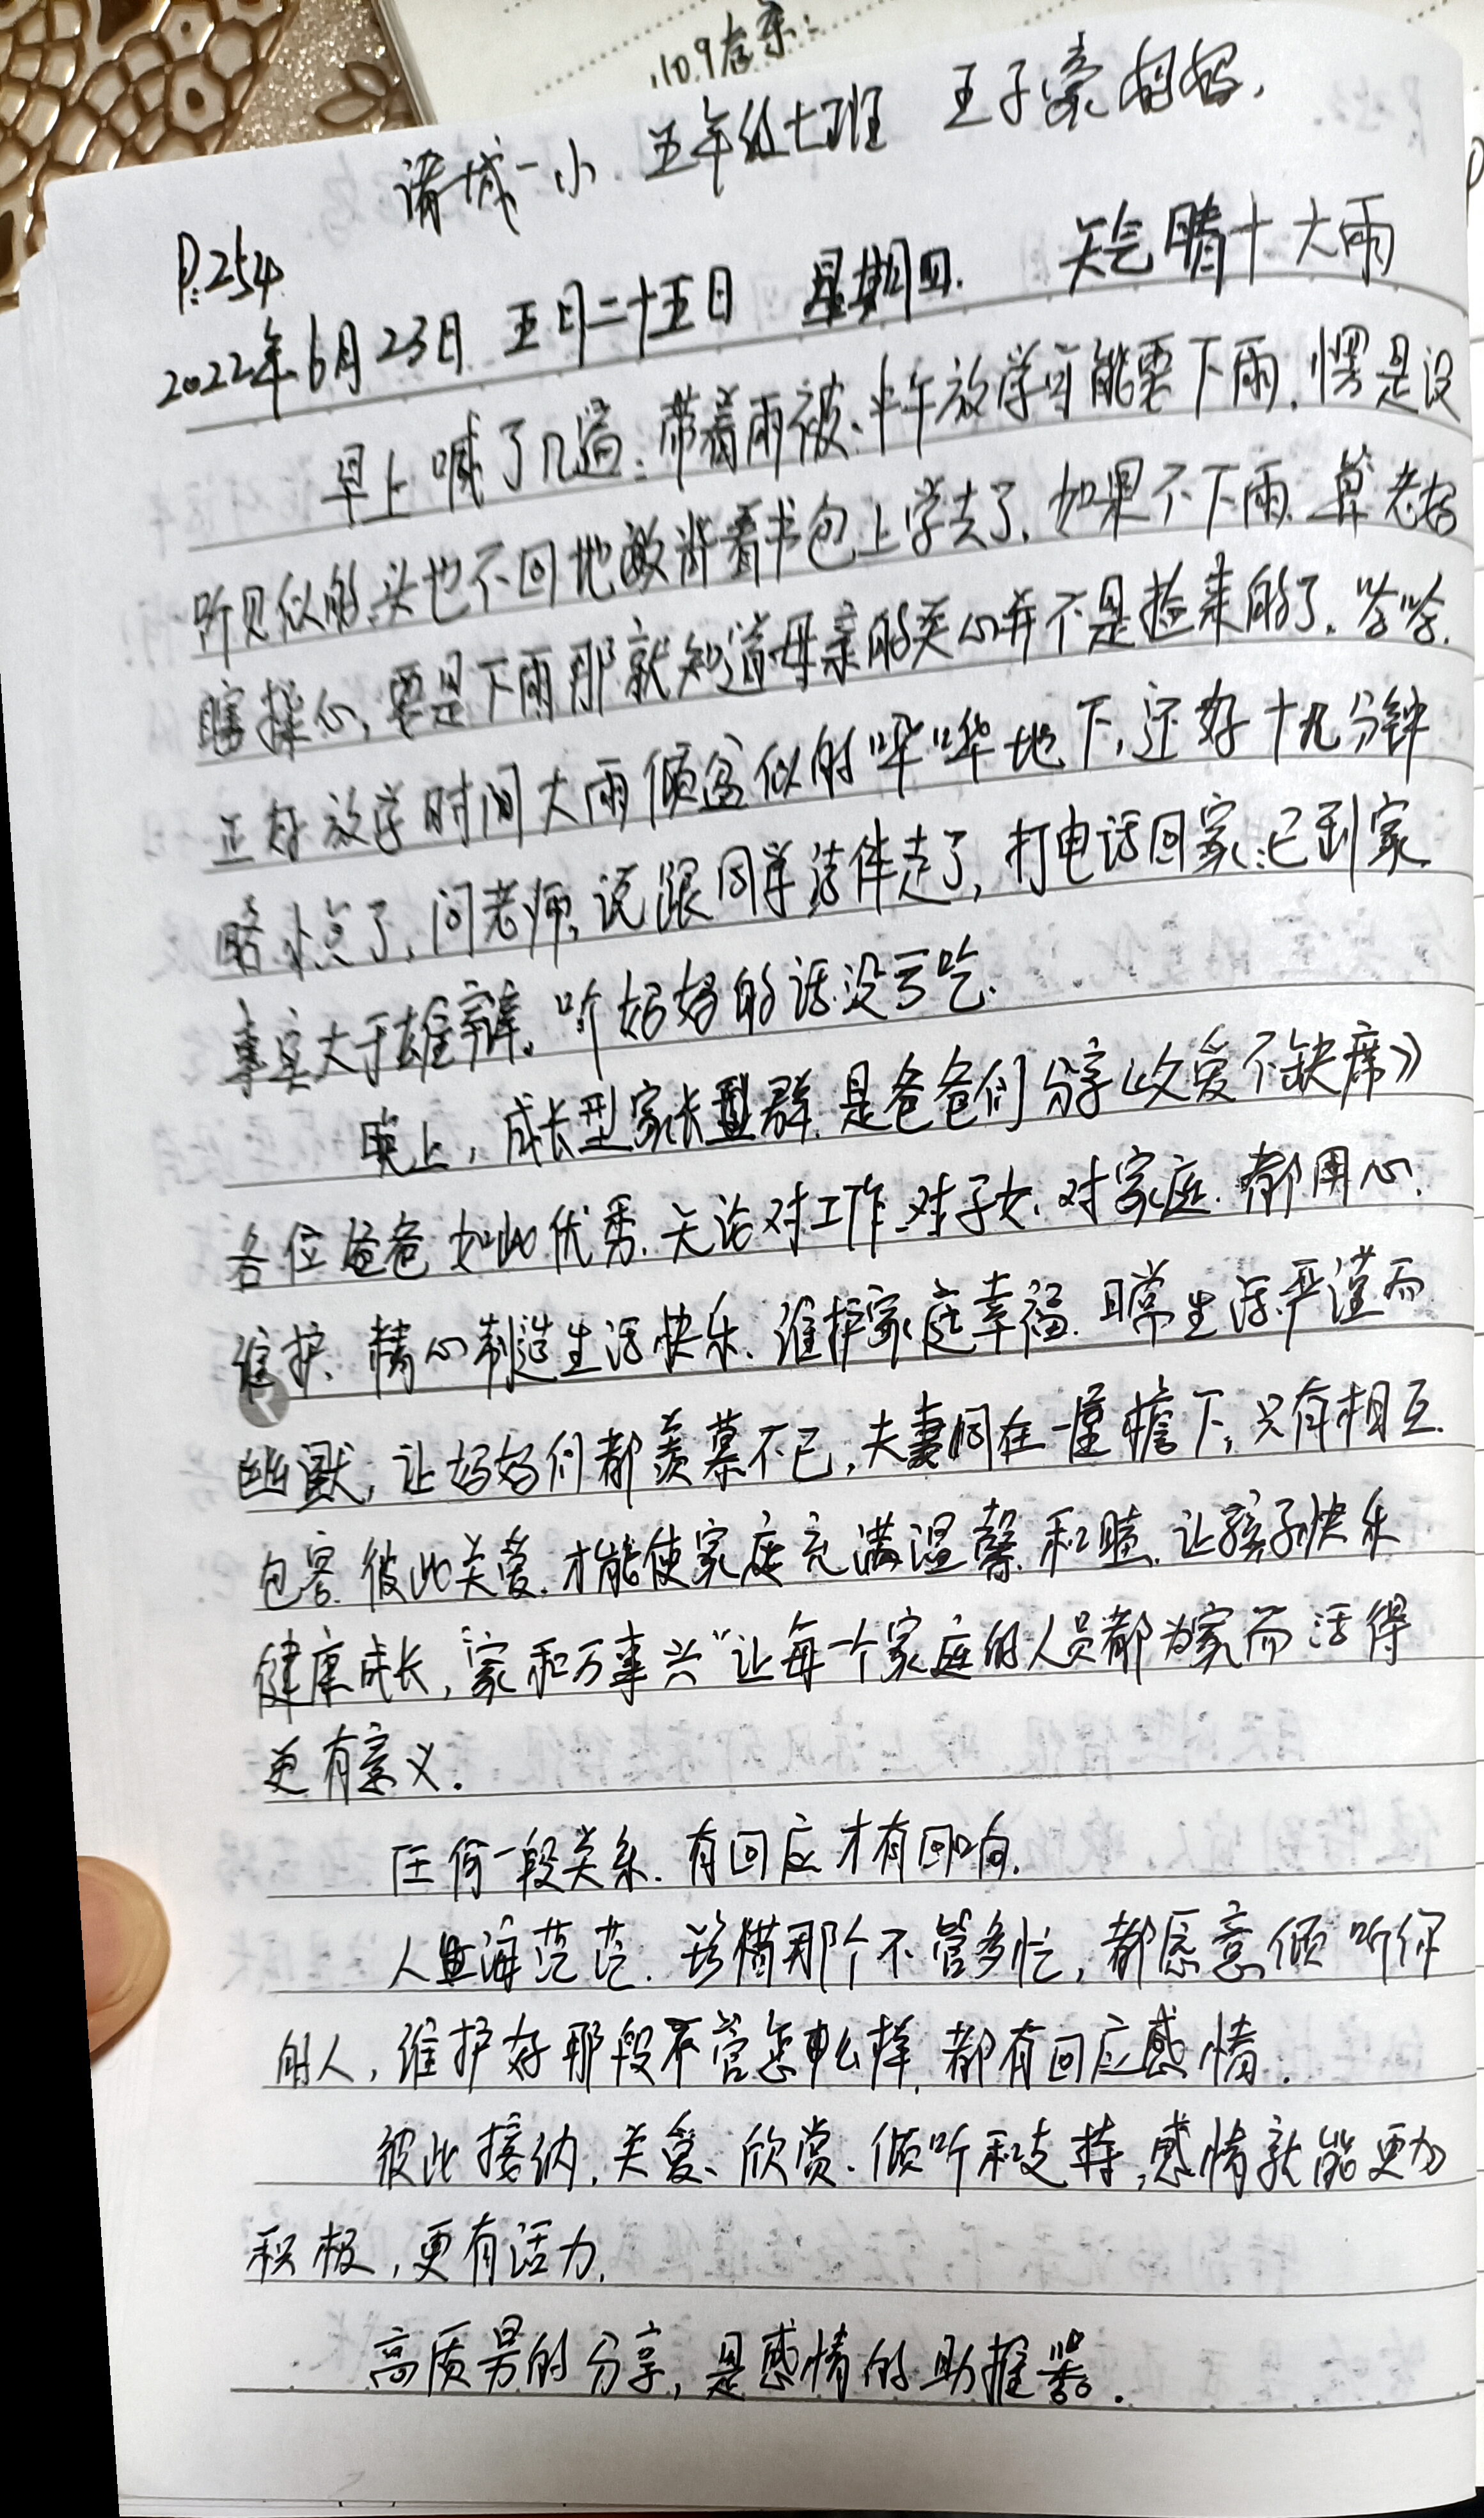 诸城一小 五年级七班 王子豪妈妈.
P.254
2022年6月23日 五月二十五日 星期四. 天气晴十大雨
早上喊了几遍:带着雨被、中午放学可能要下雨.愣是没
听见似的头也不回地敞背着书包上学去了.如果不下雨.算老妈
瞎操心,要是下雨那就知道母亲的关心并不是捡来的了.哈哈.
正好放学时间大雨倾盆似的哗哗地下,还好十九分钟
略小点了,问老师,说跟同学结伴走了,打电话回家:已到家.
事实大于雄辩,听妈妈的话没亏吃.
晚上,成长型家长群.是爸爸们分享《父爱不缺席》
各位爸爸如此优秀.无论对工作、对子女、对家庭.都用心.
维护.精心制造生活快乐.维护家庭幸福.日常生活严谨而
幽默,让妈妈们都羡慕不已,夫妻同在一屋檐下,只有相互.
包容.彼此关爱.才能使家庭充满温馨.和睦.让孩子快乐
健康成长,“家和万事兴”让每一个家庭的人员都为家而活得
更有意义.
任何一段关系.有回应才有回响.
人海茫茫.珍惜那个不管多忙,都愿意倾听你
的人,维护好那段不管怎么样.都有回应感情.
彼此接纳.关爱、欣赏.倾听和支持,感情就能更加
积极,更有活力.
高质男的分享,是感情的助推器.